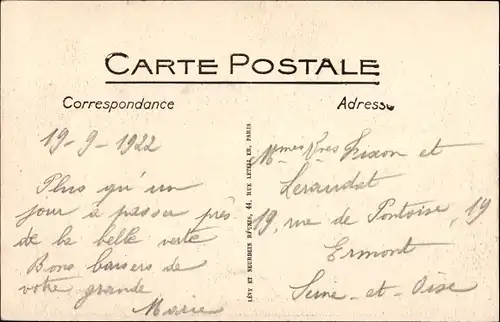 CARTE POSTALE
Correspondance
Adresse
19-9-1922
Plus qu'un
jour à passer près
de la belle verte
Bons baisers de
votre grande
Marie
LÉVY ET NEURDEIN RÉUNIS, 44, RUE LETELLIER, PARIS
Mmes Vves Lixon et
Leraudat
19, rue de Pontoise, 19
Ermont
Seine-et-Oise